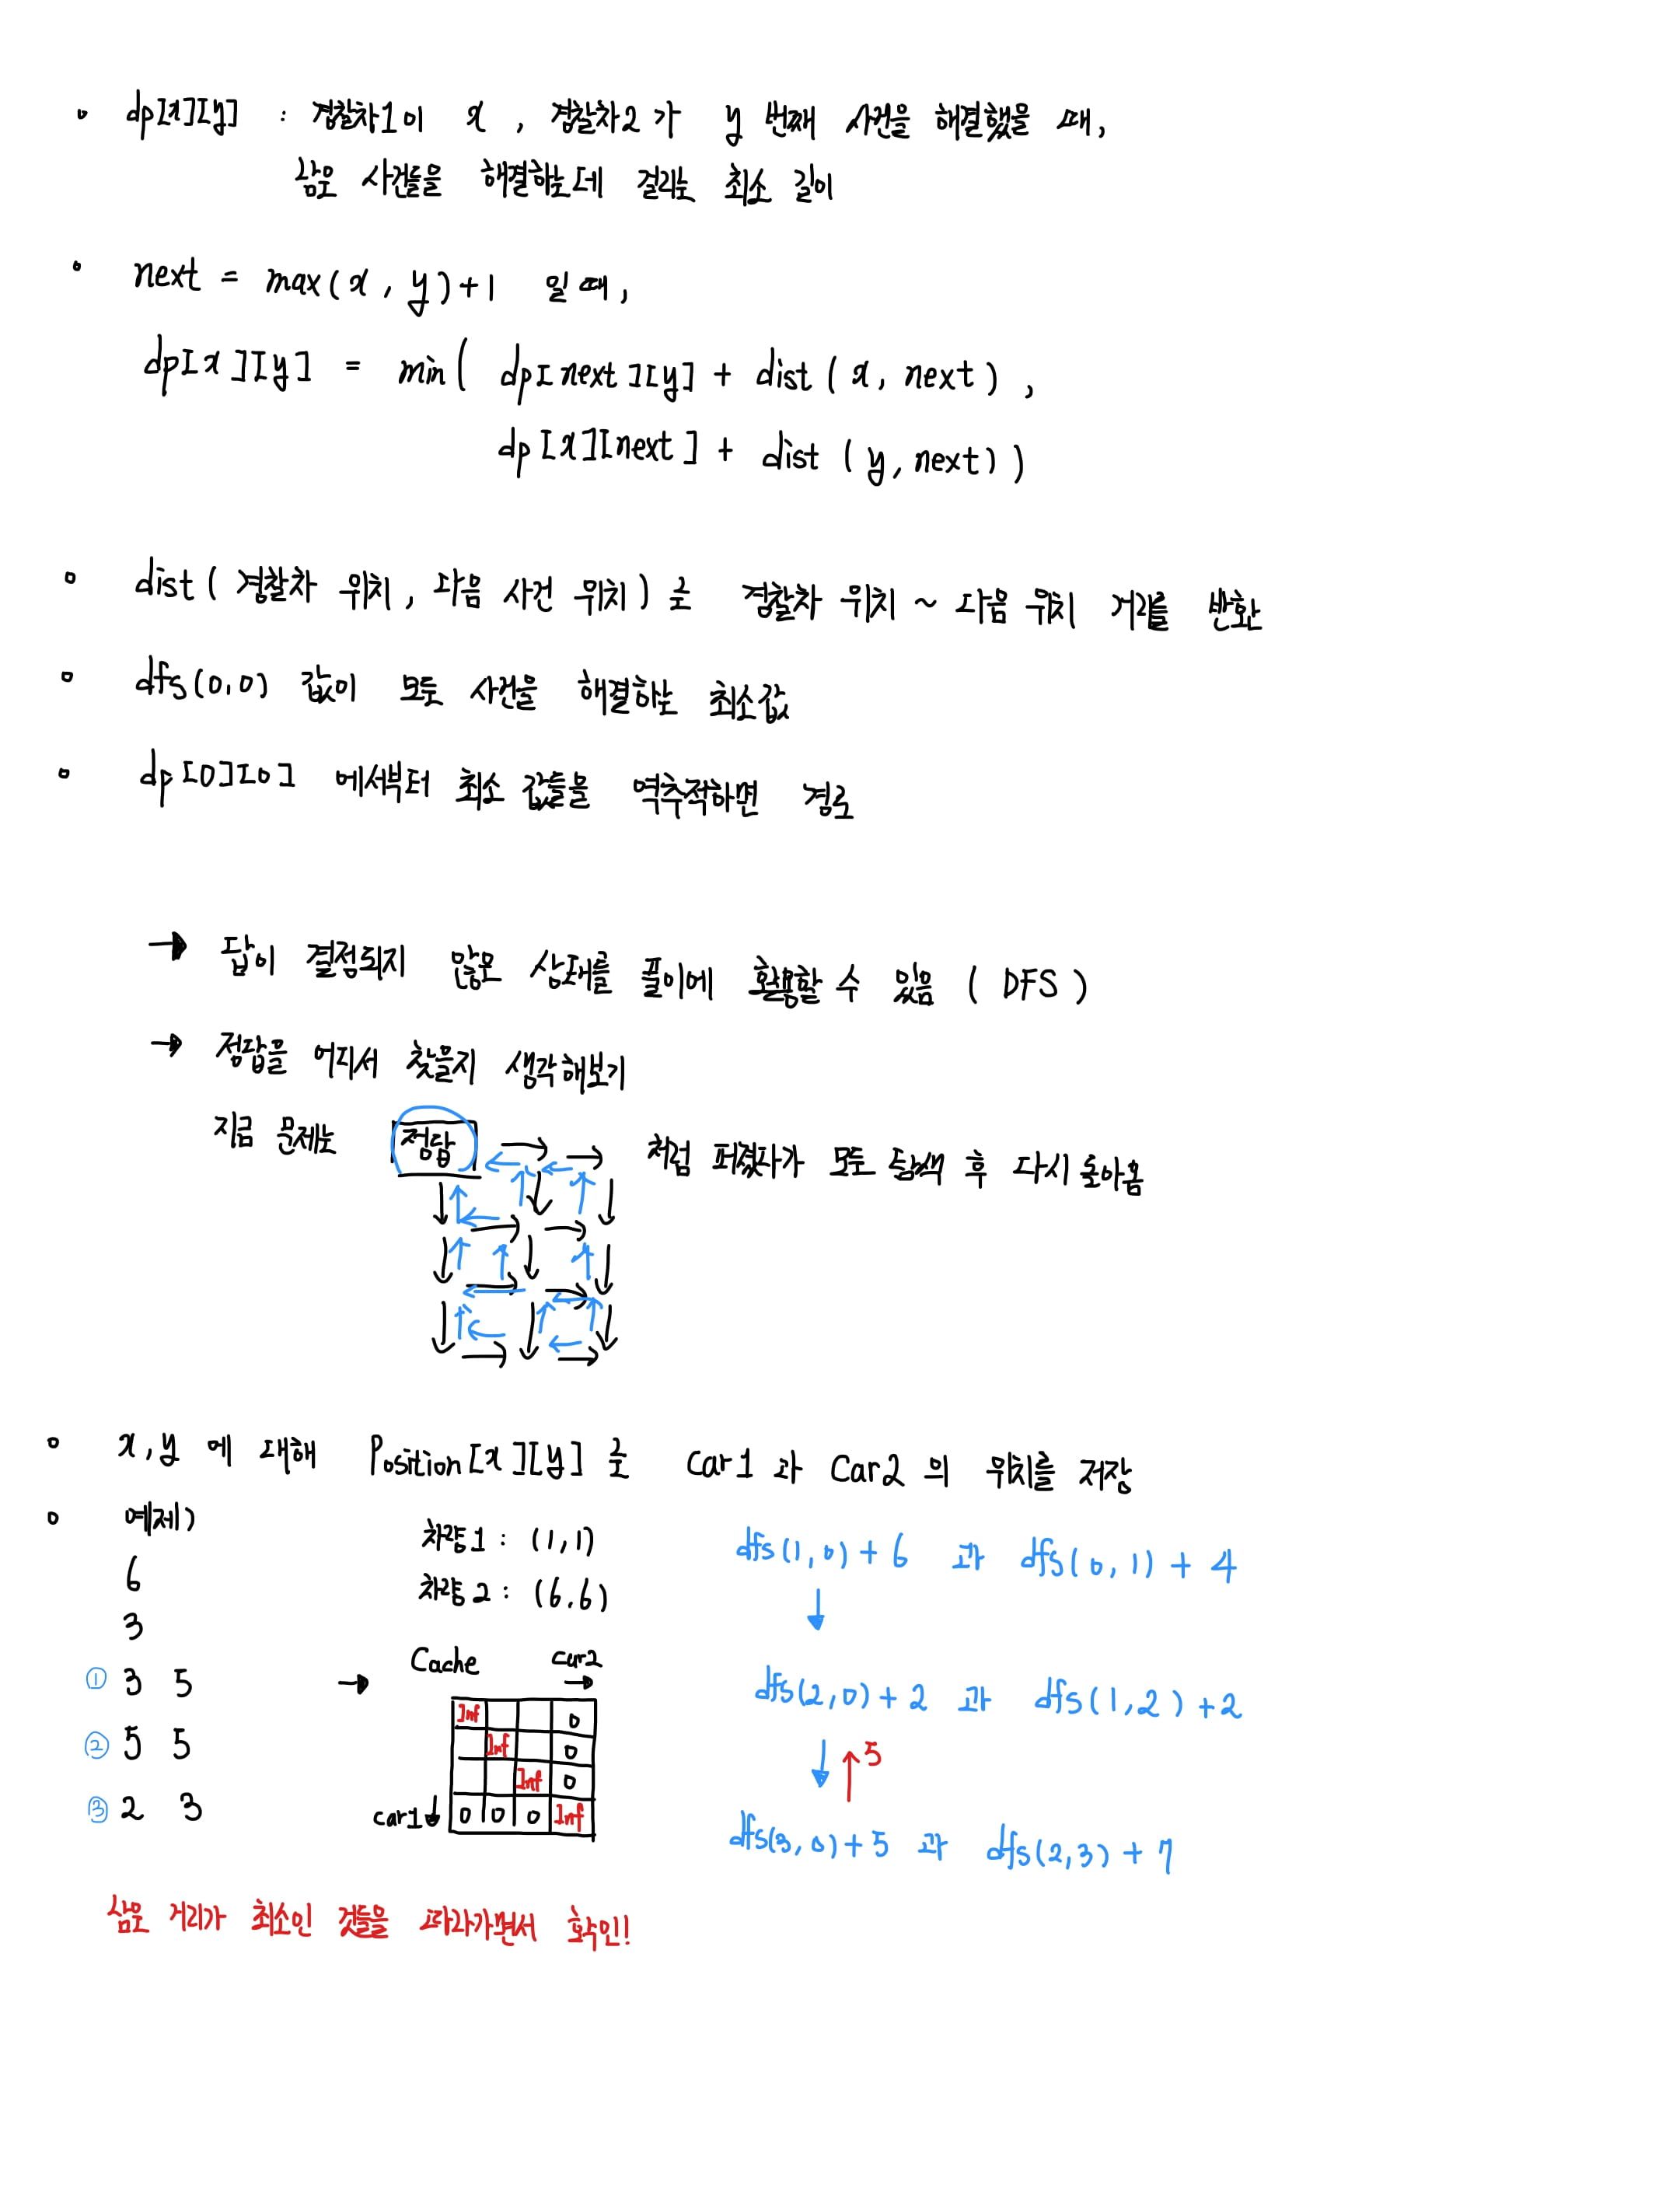 ◦ dp[x][y] : 경찰차1이 x , 경찰차2가 y 번째 사건을 해결했을 때,
남은 사건들을 해결하는데 걸리는 최소 길이
◦ next = max(x, y)+1 일 때,
dp[x][y] = min( dp[next][y] + dist(x, next) ,
dp[x][next] + dist(y, next))
◦ dist(경찰차 위치, 다음 사건 위치)는 경찰차 위치 ~ 다음 위치 거리를 반환
◦ dfs(0,0) 값이 모든 사건을 해결하는 최소값
◦ dp[0][0] 에서부터 최소 값들을 역추적하면 경로
→ 답이 결정되지 않은 상태를 풀이에 활용할 수 있음 ( DFS )
→ 정답을 어디서 찾을지 생각해보기
지금 문제는 정답 처럼 퍼졌다가 모두 탐색 후 다시 돌아옴
◦ x,y 에 대해 Position[x][y] 로 Car1 과 Car2 의 위치를 저장
◦ 예제)
6
3
① 3 5
② 5 5
③ 2 3
차량1 : (1,1)
차량2 : (6.6)
→ Cache car2 →
Inf 0
Inf 0
Inf 0
car1↓ 0 0 0 Inf
dfs(1,0)+6 과 dfs(0,1)+4
↓
dfs(2,0)+2 과 dfs(1,2)+2
↓ ↑5
dfs(3,0)+5 과 dfs(2,3)+7
남은 거리가 최소인 것들을 따라가면서 확인!